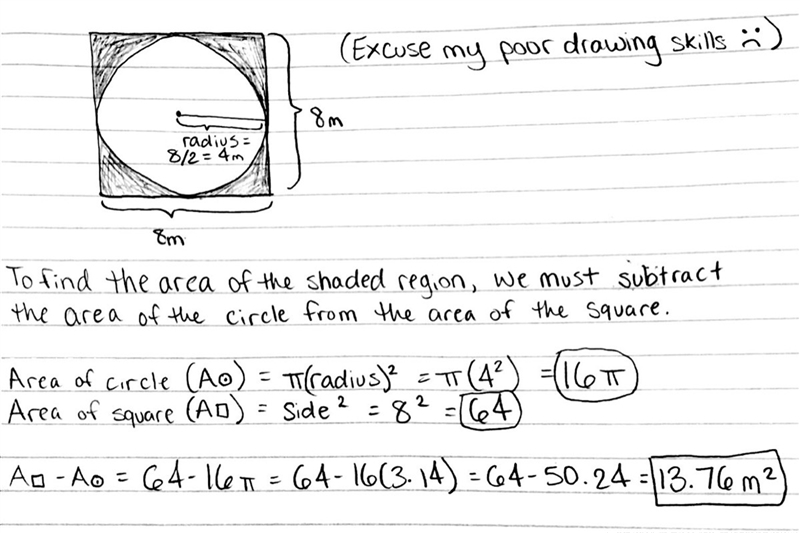 (Excuse my poor drawing skills :()
8m
radius =
8/2 = 4m
8m
To find the area of the shaded region, we must subtract
the area of the circle from the area of the square.
Area of circle (A⊙) = π(radius)² = π(4²) = 16π
Area of square (A□) = Side² = 8² = 64
A□ - A⊙ = 64 - 16π = 64 - 16(3.14) = 64 - 50.24 = 13.76 m²